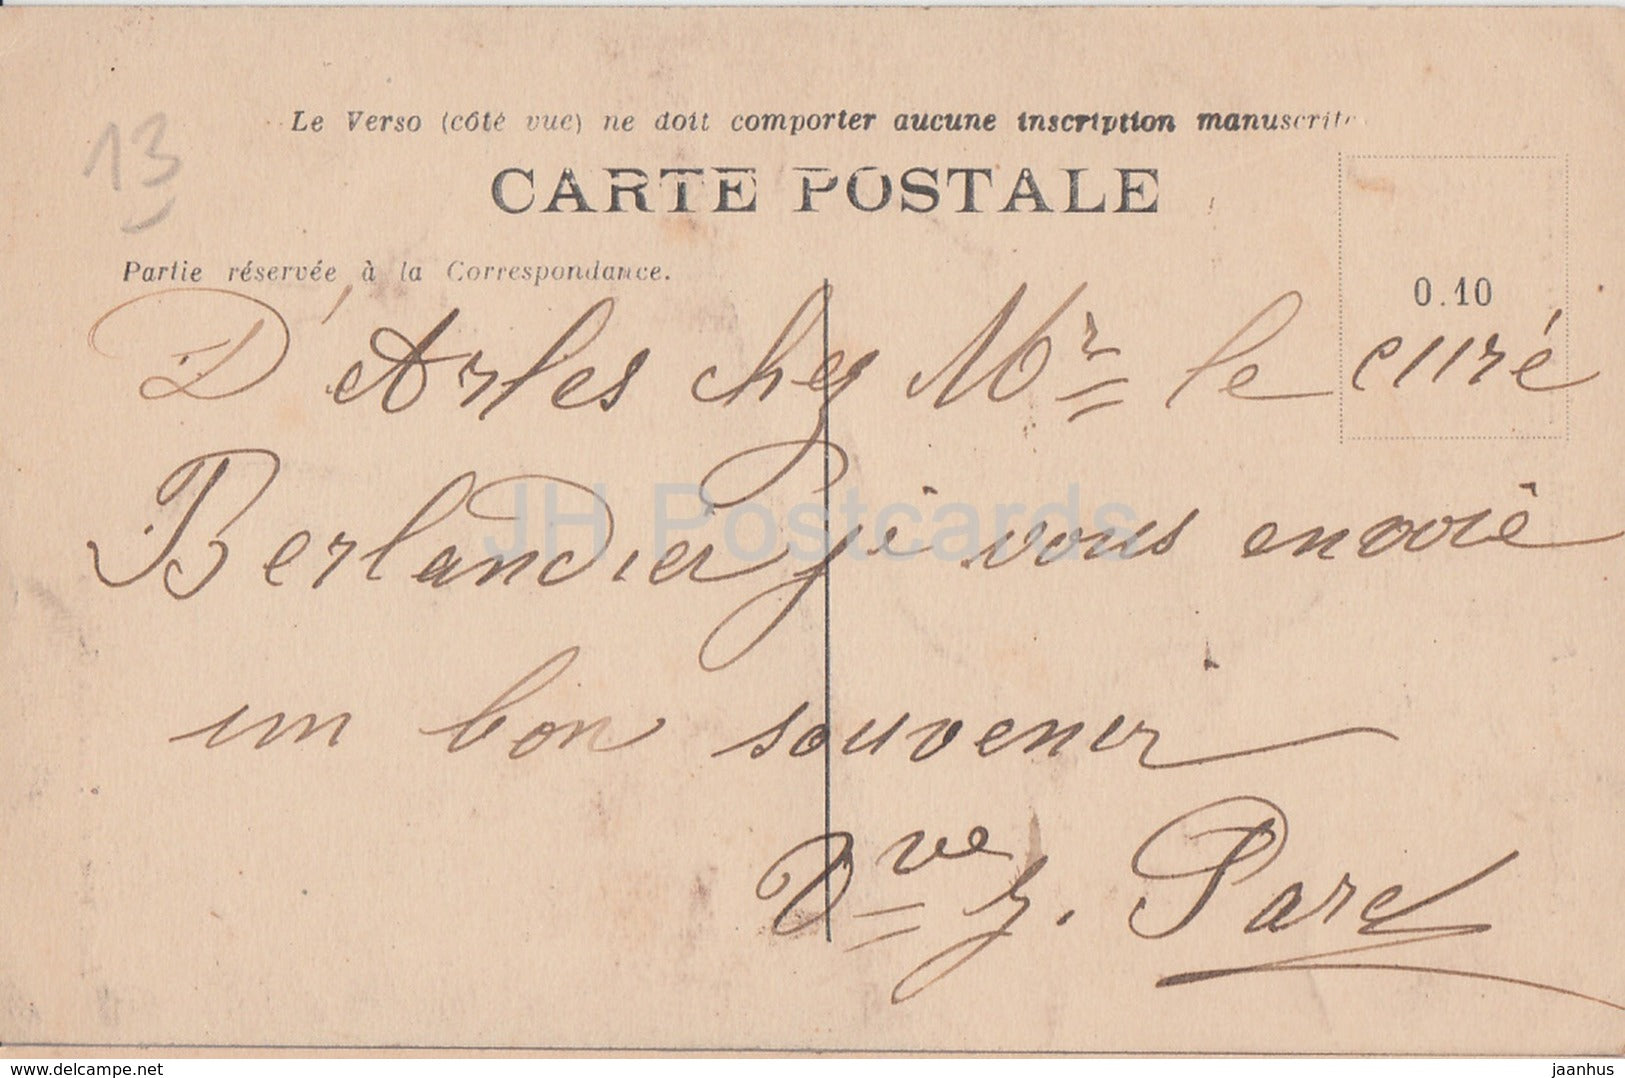 13
Le Verso (côté vue) ne doit comporter aucune inscription manuscrite
CARTE POSTALE
Partie réservée à la Correspondance.
0.10
D'Arles chez Mr le curé
Berlandier je vous envoie
un bon souvenir
Vve J. Paret
JH Postcards
www.delcampe.net
jaanhus